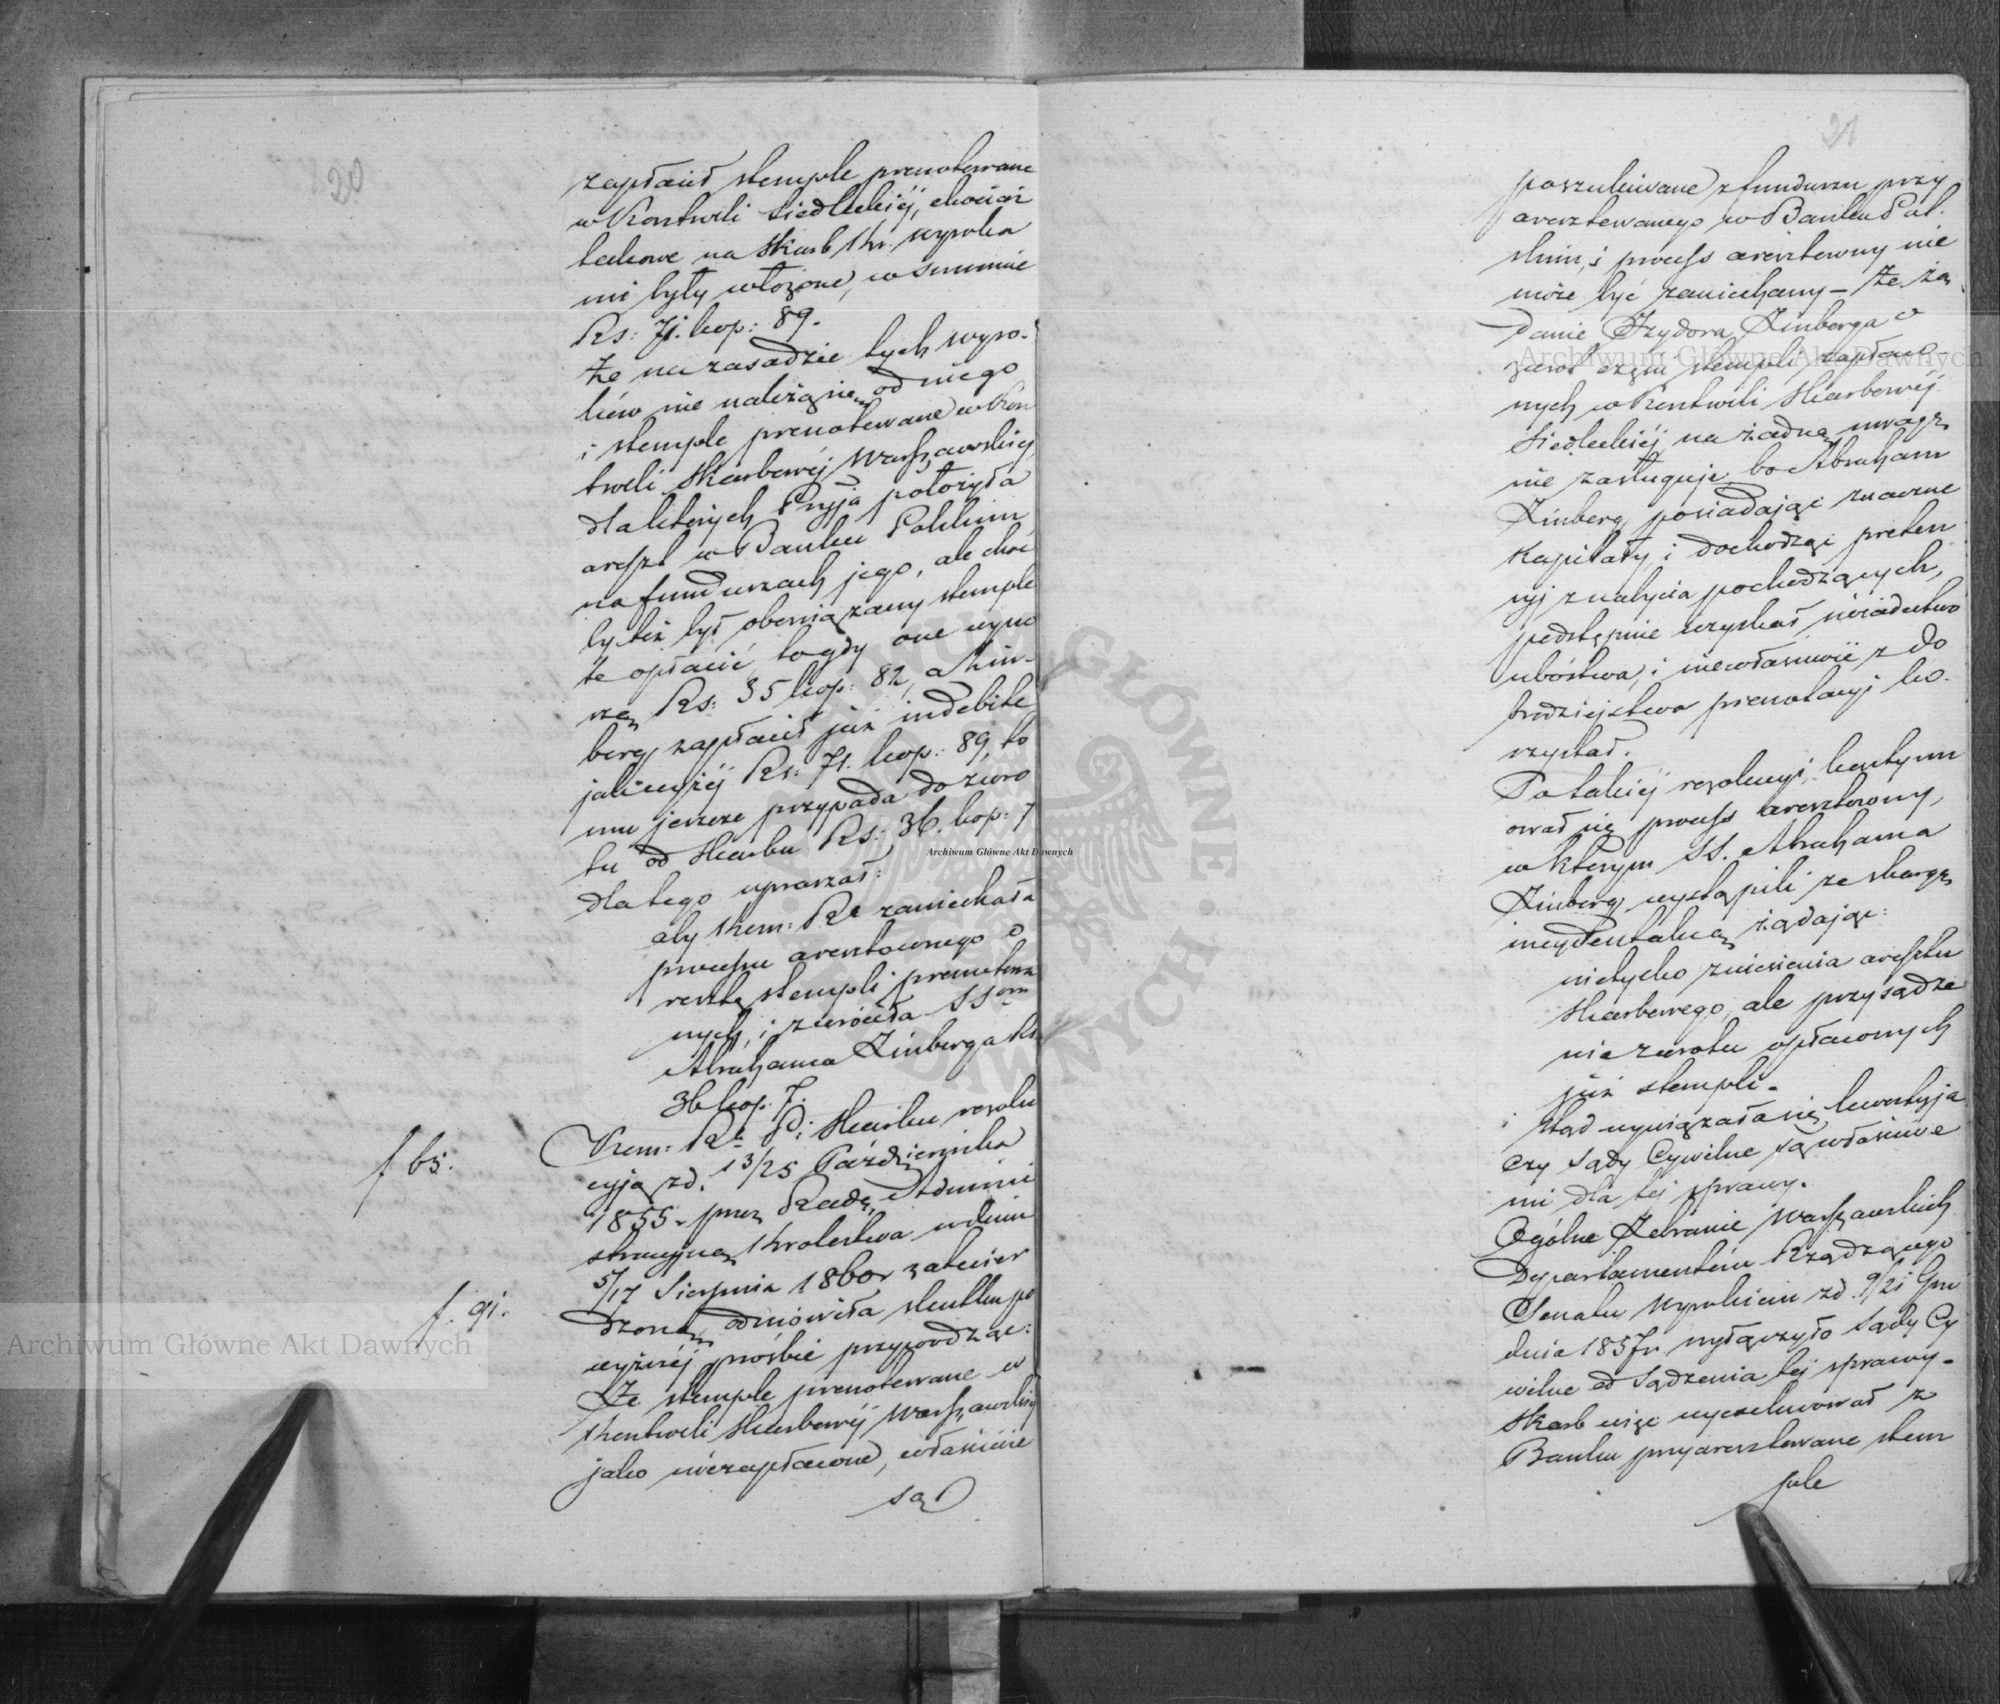 20
zapłacił stemple prenotowane
w Kontroli Siedleckiéj, chociaż
takowe na Skarb Kr. wyroka
mi były włożone, w summie
Rs: 71. kop: 89.
Że na zasadzie tych wyro-
ków nie należą się od niego
i stemple prenotowane w Kon
troli Skarbowéj Warszawskiéj
dla których Pryja położyła
areszt w Banku Polskim
na funduszach jego, ale choć
by też był obowiązany stemple
te opłacić, to gdy one wyno
szą Rs: 35 kop: 82, a Zin-
berg zapłacił już indebite
jak wyżéj Rs: 71. kop: 89, to
mu jeszcze przypada do zwro
tu od Skarbu Rs: 36. kop: 7
dla tego upraszał:
aby Kom: Rz zaniechała
processu aresztownego o
resztę stempli prenotowa
nych, i zwróciła SSom
Abrahama Zinberga Rs.
36 kop: 7.
f 65.
Kom: Rz. P. Skarbu rezolu
cyją z d. 13/25 Października
1855. przez Radę Admini
stracyjną Królestwa w dniu
5/17 Sierpnia 1860r zatwier
f. 91.
dzoną odmówiła skutku po
wyższéj prośbie przywodząc:
Że stemple prenotowane w
Kontroli Skarbowéj Warszawskiéj
jako niezapłacone, właściwie
są
21
poszukiwane z funduszu przy
aresztowanego w Banku Pol.
skim, i process aresztowny nie
może być zaniechany – Że żą
danie Izydora Zinberga o
zwrot czém stempli zapłaco
nych w Kontroli Skarbowéj
Siedleckiéj, na żadną uwagę
nie zasługuje, bo Abraham
Zinberg posiadając znaczne
kapitały, i dochodząc preten
syj z nabycia pochodzących,
podstępnie uzyskał świadectwo
ubóstwa, i niewłaściwie z do
brodziejstwa prenotacyi ko-
rzystał.
Po takiéj rezolucyi, kontynu
ował się process aresztowny,
w którym SS. Abrahama
Zinberg wystąpili ze skargą
incydentalną żądając:
nietylko zniesienia aresztu
Skarbowego, ale przysądze
nia zwrotu opłaconych
już stempli.
Ztąd wywiązała się kwestyja
czy Sądy Cywilne są właściwe
mi dla téj sprawy.
Ogólne Zebranie Warszawskich
Departamentów Rządzącego
Senatu Wyrokiem z d. 9/21 Gru
dnia 1857r. wyłączyło Sądy Cy
wilne od Sądzenia téj sprawy.
Skarb więc wyexekwował z
Banku przyaresztowane stem
ple
Archiwum Główne Akt Dawnych
Archiwum Główne Akt Dawnych
Archiwum Główne Akt Dawnych